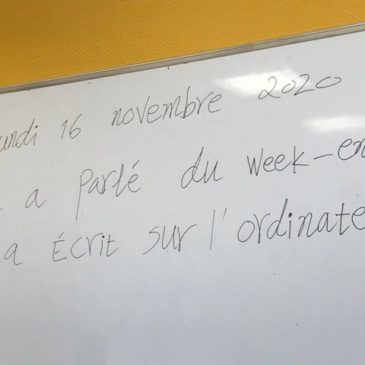 undi 16 novembre 2020
a parlé du week-en
a écrit sur l'ordinate